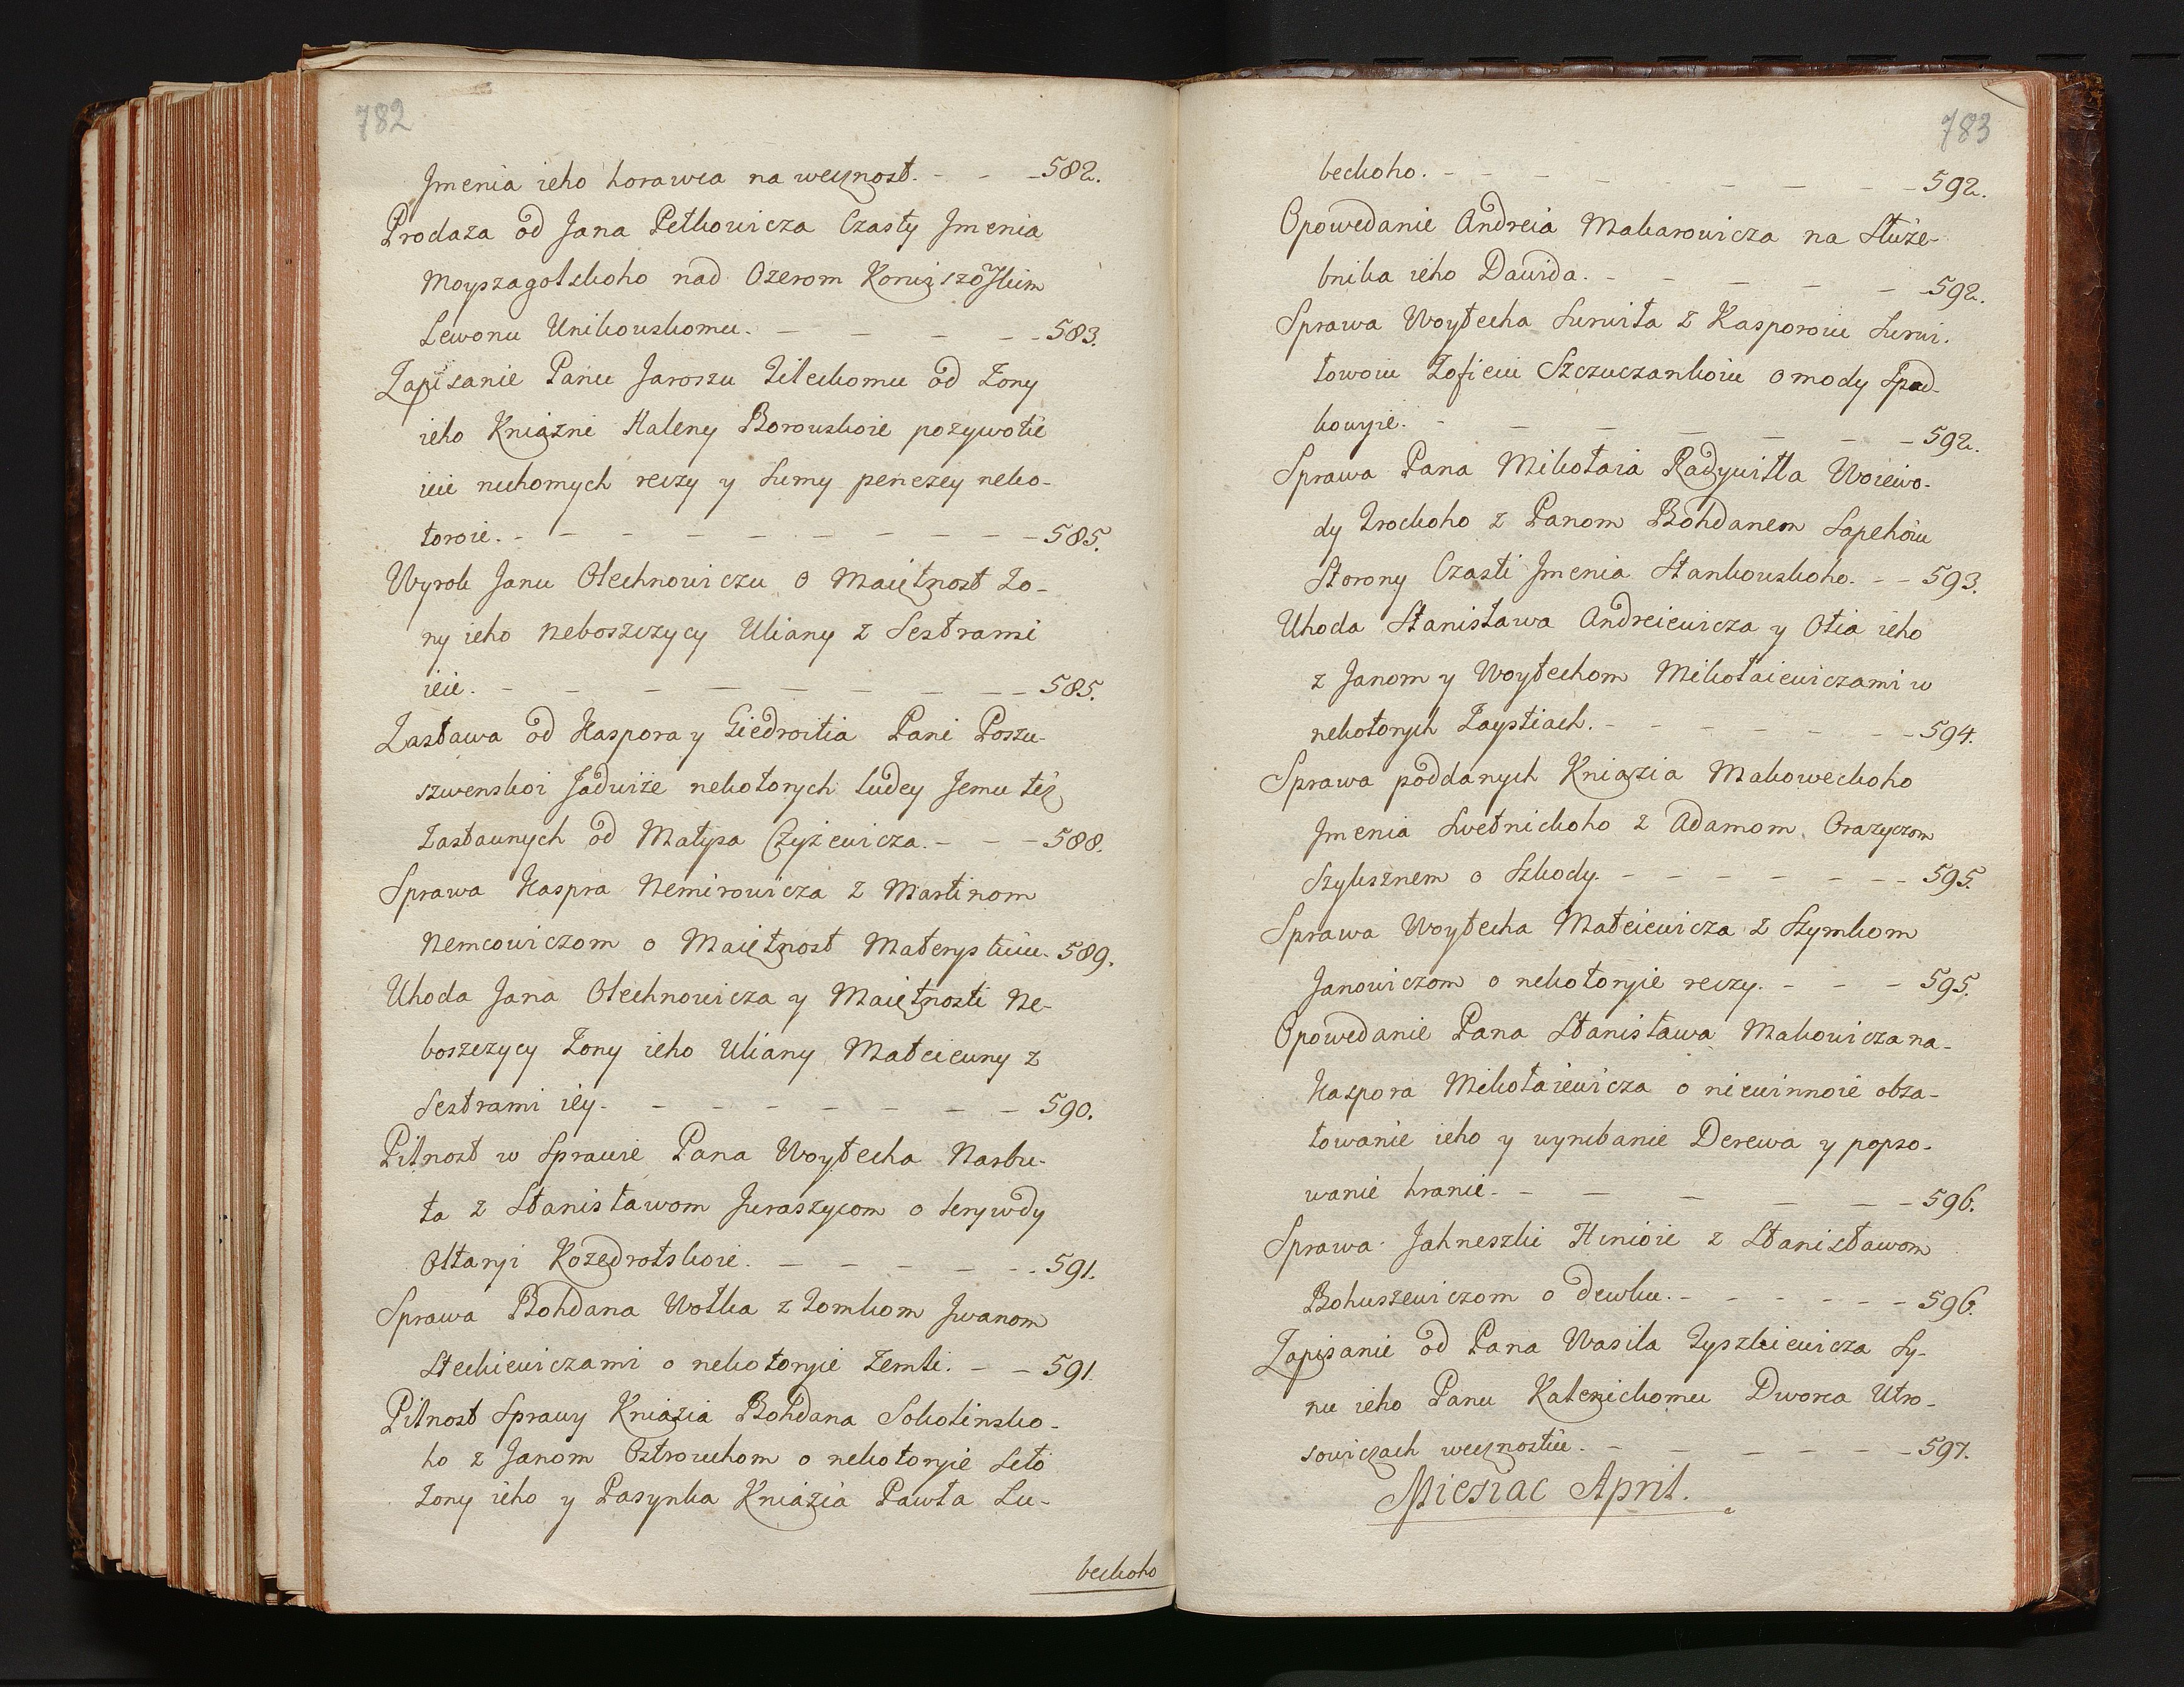 782
Jmenia ieho horawca na wecznost. - - - 582.
Prodaza od Jana Petkowicza Czasty Jmenia
Moyszagolskoho nad Ozerom
Lewonu Unikouskomu. - - - - 583.
Zapisanie Panu Jaroszu Zileckomu od Zony
ieho Kniazni Haleny Borouskoie pozywotie
ieie ruchomych reczy y Sumy penezey neko-
toroie. - - - - - - - - - 585.
Wyrok Janu Olechnowiczu o Maiętnost Zo-
ny ieho neboszczycy Uliany z Sestrami
ieie. - - - - - - - - 585.
Zastawa od Kaspora y Giedroitia Pani Poszu-
szwenskoi Jadwize nekotorych ludey Jemu tez
Zastaunych od Matysa Czyżewicza. - - - 588.
Sprawa Kaspra Nemirowicza z Martinom
Nemcowiczom o Maiętnost Materystuiu. 589.
Uhoda Jana Olechnowicza y Maiętnosti Ne-
boszczycy Zony ieho Uliany Mateiewny z
Sestrami iey. - - - - - - - 590.
Pilnost w Sprawie Pana Woytecha Narbu-
ta z Stanisławom Juraszycom o krywdy
Oltaryi Kozedrotskoie. - - - - - 591.
Sprawa Bohdana Wołka z Tomkom Jwanom
Steckiewiczami o nekotoryie Zemli. - - 591.
Pilnost Sprawy Kniazia Bohdana Sokolinsko-
ho z Janom Ostrouchom o nekotoryie Seło
Zony ieho y Pasynka Kniazia Pawła Lu-
beckoho
783
beckoho. - - - - - - - - 592.
Opowedanie Andreia Makarowicza na Służe-
bnika ieho Dawida. - - - - - 592.
Sprawa Woytecha Surwiła z Kasporowiu Surwi-
łowoiu Zofieiu Szczuczankoiu o mody Spad-
kowyie. - - - - - - - 592.
Sprawa Pana Mikołaia Radywiłła Woiewo-
dy Trockoho z Panom Bohdanem Sapehoiu
Storony Czasti Jmenia Stankouskoho. - - 593.
Uhoda Stanisława Andreiewicza y Otia ieho
z Janom y Woytechom Mikołaiewiczami w
nekotorych Zaystiach. - - - - - - 594.
Sprawa poddanych Kniazia Makoweckoho
Jmenia Swetnickoho z Adamom Orazyczom
Szyksznem o Szkody. - - - - - - 595.
Sprawa Woytecha Mateiewicza z Szymkom
Janowiczom o nekotoryie reczy. - - - 595.
Opowedanie Pana Stanisława Makowicza na-
Kaspora Mikołaiewicza o niewinnoie obza-
łowanie ieho y wyrubanie Derewa y popso-
wanie hranie. - - - - - - 596.
Sprawa Jahneszki Hinioie z Stanisławom
Bohuszewiczom o dewku. - - - - - - 596.
Zapisanie od Pana Wasila Tyszkiewicza Sy-
nu ieho Panu Kalenickomu Dworca Utro-
sowiczach wecznostiu. - - - - - 597.
Miesiac April.